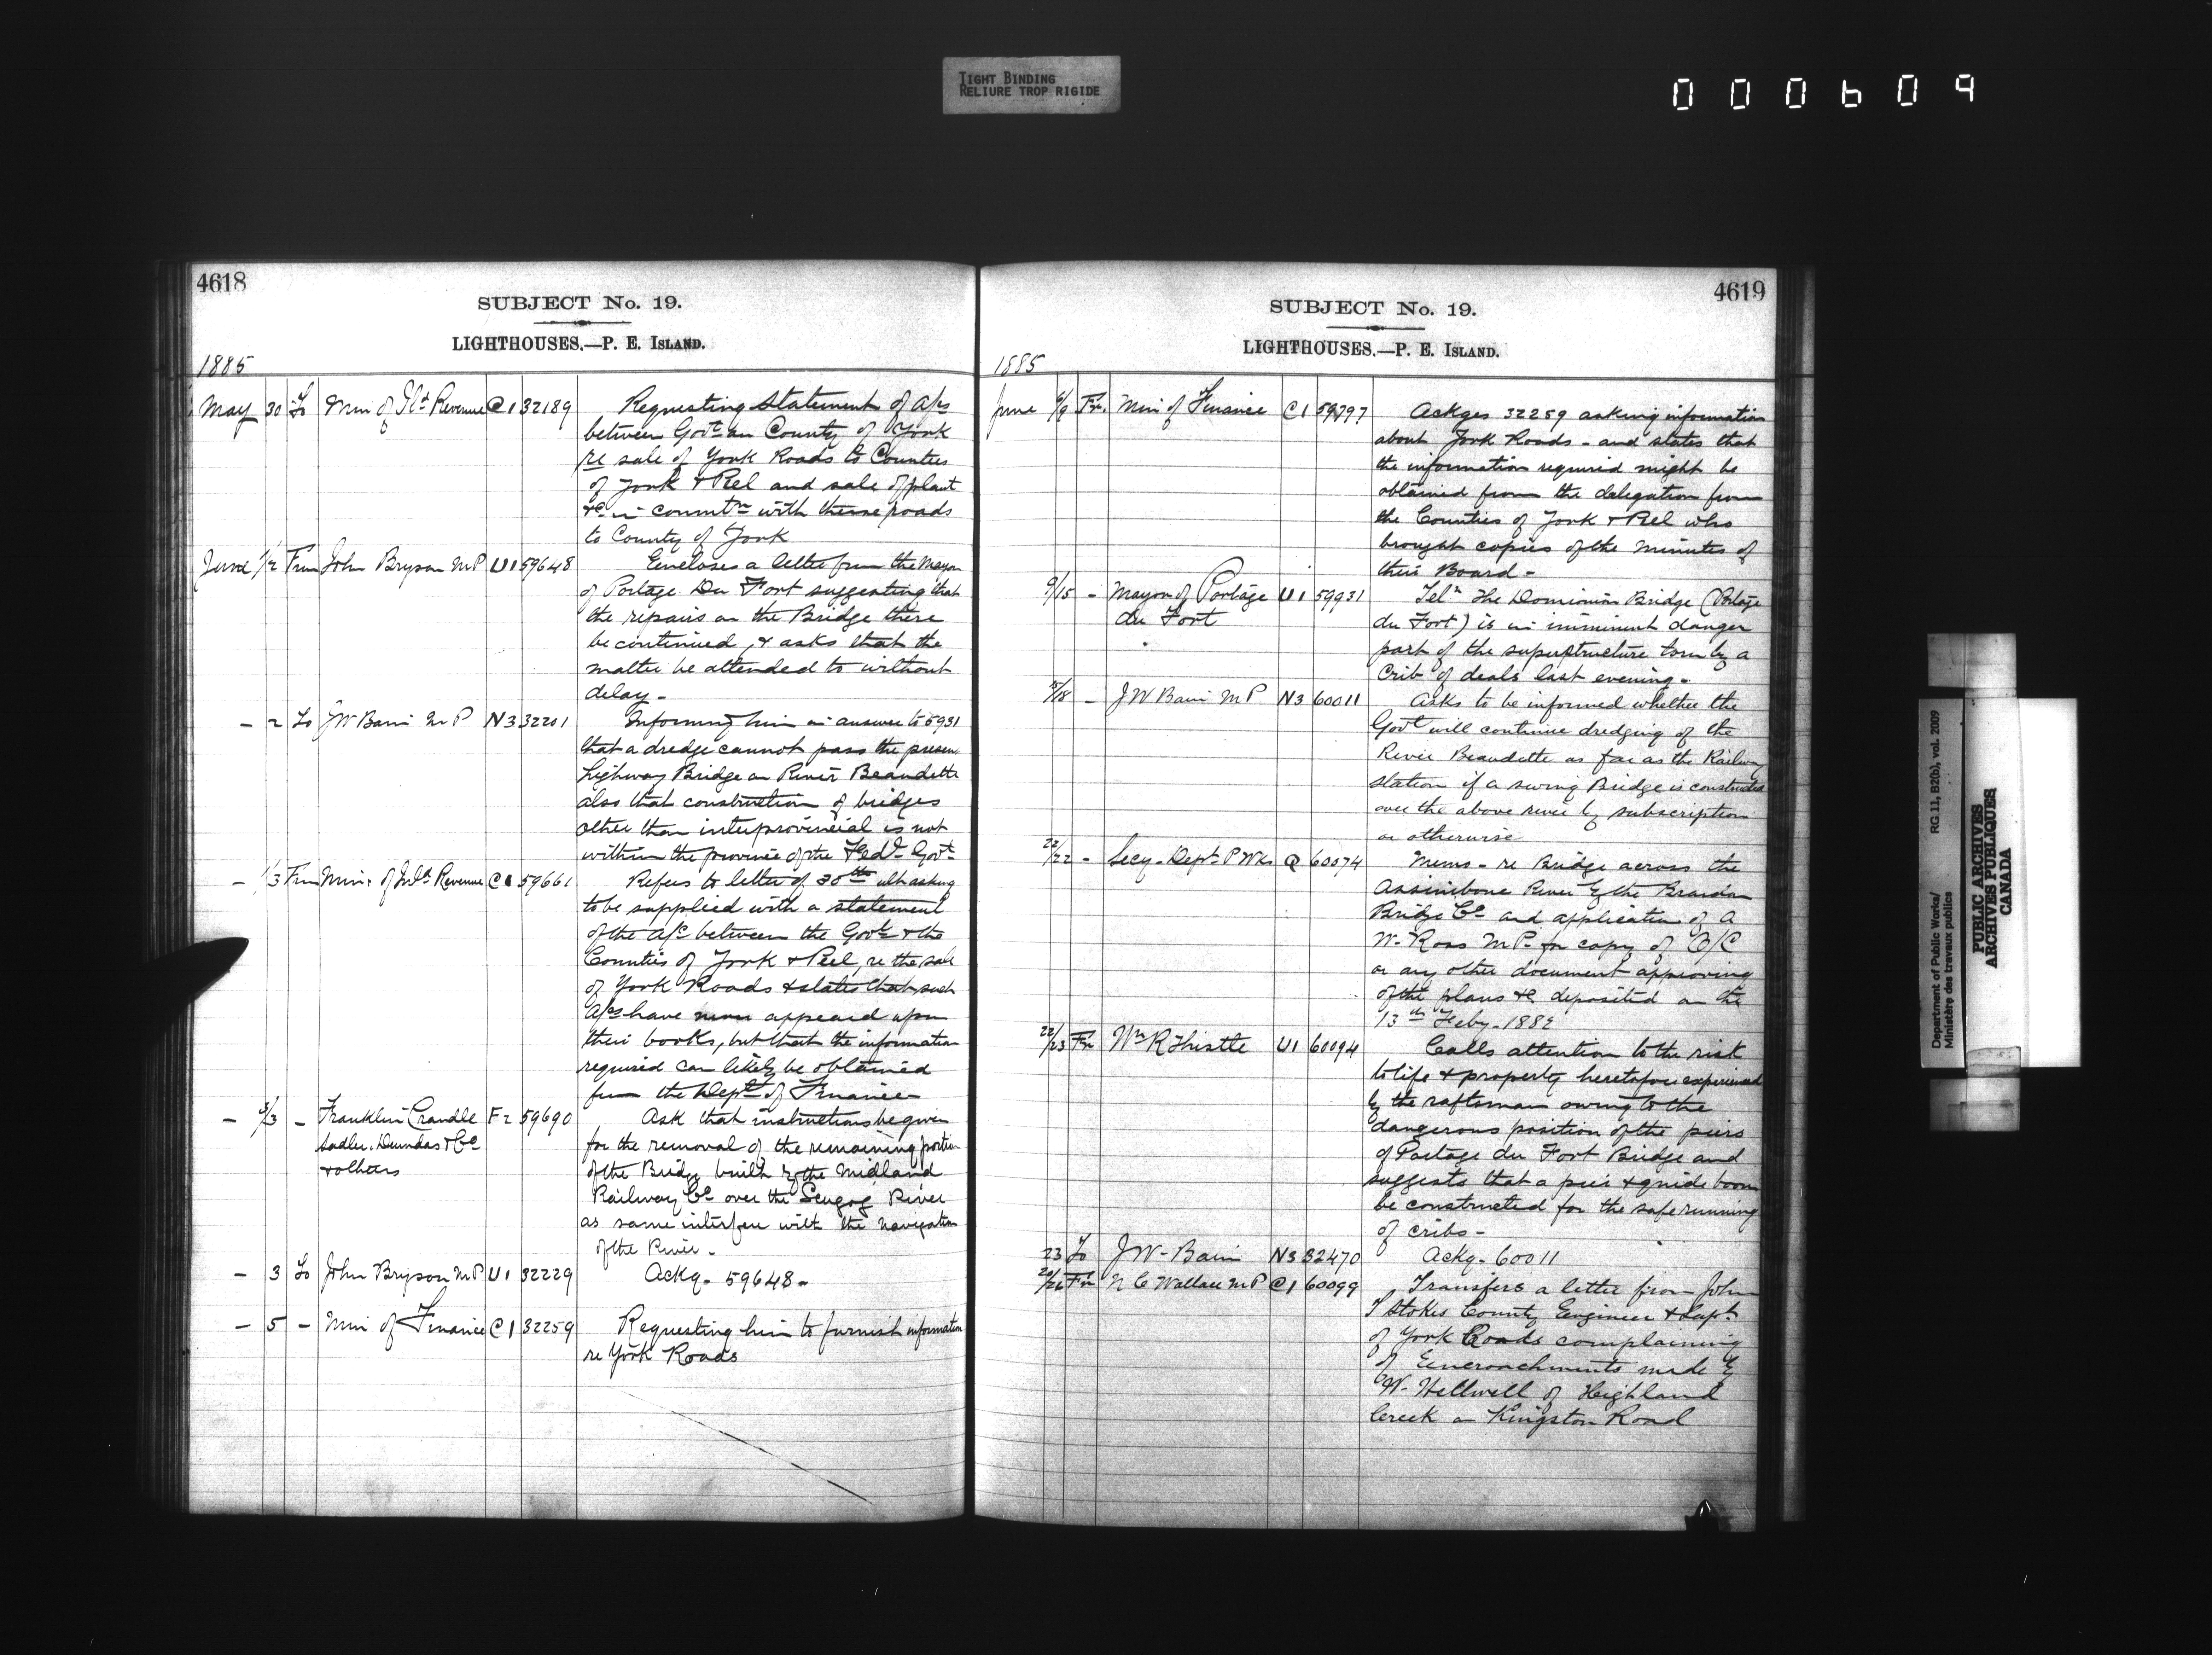 TIGHT BINDING
RELIURE TROP RIGIDE
000609
4618
SUBJECT No. 19.
LIGHTHOUSES.—P. E. ISLAND.
1885
May 30 To Min of Ild Revenue C1 32189 Requesting Statement of A/cs
between Govt an County of York
re sale of York Roads to Counties
of York & Peel and sale of plant
&c in connectn with these roads
to County of York
June 1/2 From John Bryson MP U1 59648 Encloses a letter from the Mayor
of Portage Du Fort suggesting that
the repairs on the Bridge there
be continued, & asks that the
matter be attended to without
delay -
- 2 To JW Bain MP N3 32201 Informing him in answer to 5931
that a dredge cannot pass the present
highway Bridge on River Beaudette
also that construction of bridges
other than interprovincial is not
within the province of the Fedl Govt
- 1/3 From Min: of Inld Revenue C1 59661 Refers to letter of 30th ult asking
to be supplied with a statement
of the a/c between the Govt & the
Counties of York & Peel, re the sale
of York Roads & states that such
A/cs have never appeared upon
their books, but that the information
required can likely be obtained
from the Dept of Finance
- 3/3 - Franklin Crandle F2 59690 Ask that instructions be given
Sadler, Dundas & Co
for the removal of the remaining portion
& others
of the Bridge built by the Midland
Railway Co over the Scugog River
as same interfere with the navigation
of the River -
- 3 To John Bryson MP U1 32229 Ackg - 59648 -
- 5 - Min of Finance C1 32259 Requesting him to furnish information
re York Roads
4619
SUBJECT No. 19.
LIGHTHOUSES.—P. E. ISLAND.
1885
June 6/9 Fr. Min of Finance C1 59797 Ackges 32259 asking information
about York Roads - and states that
the information required might be
obtained from the delegation from
the Counties of York & Peel who
brought copies of the Minutes of
their Board -
9/15 - Mayor of Portage U1 59931 Teln The Dominion Bridge (Portage
du Fort
du Fort) is in imminent danger
part of the superstructure torn by a
Crib of deals last evening -
15/18 - JW Bain MP N3 60011 Asks to be informed whether the
Govt will continue dredging of the
River Beaudette as far as the Railway
station if a swing Bridge is constructed
over the above river by subscription
or otherwise
22/22 - Secy - Dept P Wks Q 60074 Memo - re Bridge across the
Assiniboine River by the Brandon
Bridge Co and application of A
W. Ross MP for copy of O/C
or any other document approving
of the plans &c deposited on the
13th Feby. 1882
22/23 Fr Wm R Thistle U1 60094 Calls attention to the risk
to life & property heretofore experienced
by the raftsman owing to the
dangerous position of the piers
of Portage du Fort Bridge and
suggests that a pier & guide boom
be constructed for the safe running
of cribs -
23 To JW - Bain N3 32470 Ackg - 60011
20/26 Fr N C Wallace MP C1 60099 Transfers a letter from John
T Stokes County Engineer & Supt
of York Roads complaining
of Encroachments made by
W. Hellwell of Highland
Creek on Kingston Road
Department of Public Works/ RG.11, B2(b), vol. 2009
Ministère des travaux publics
PUBLIC ARCHIVES
ARCHIVES PUBLIQUES
CANADA